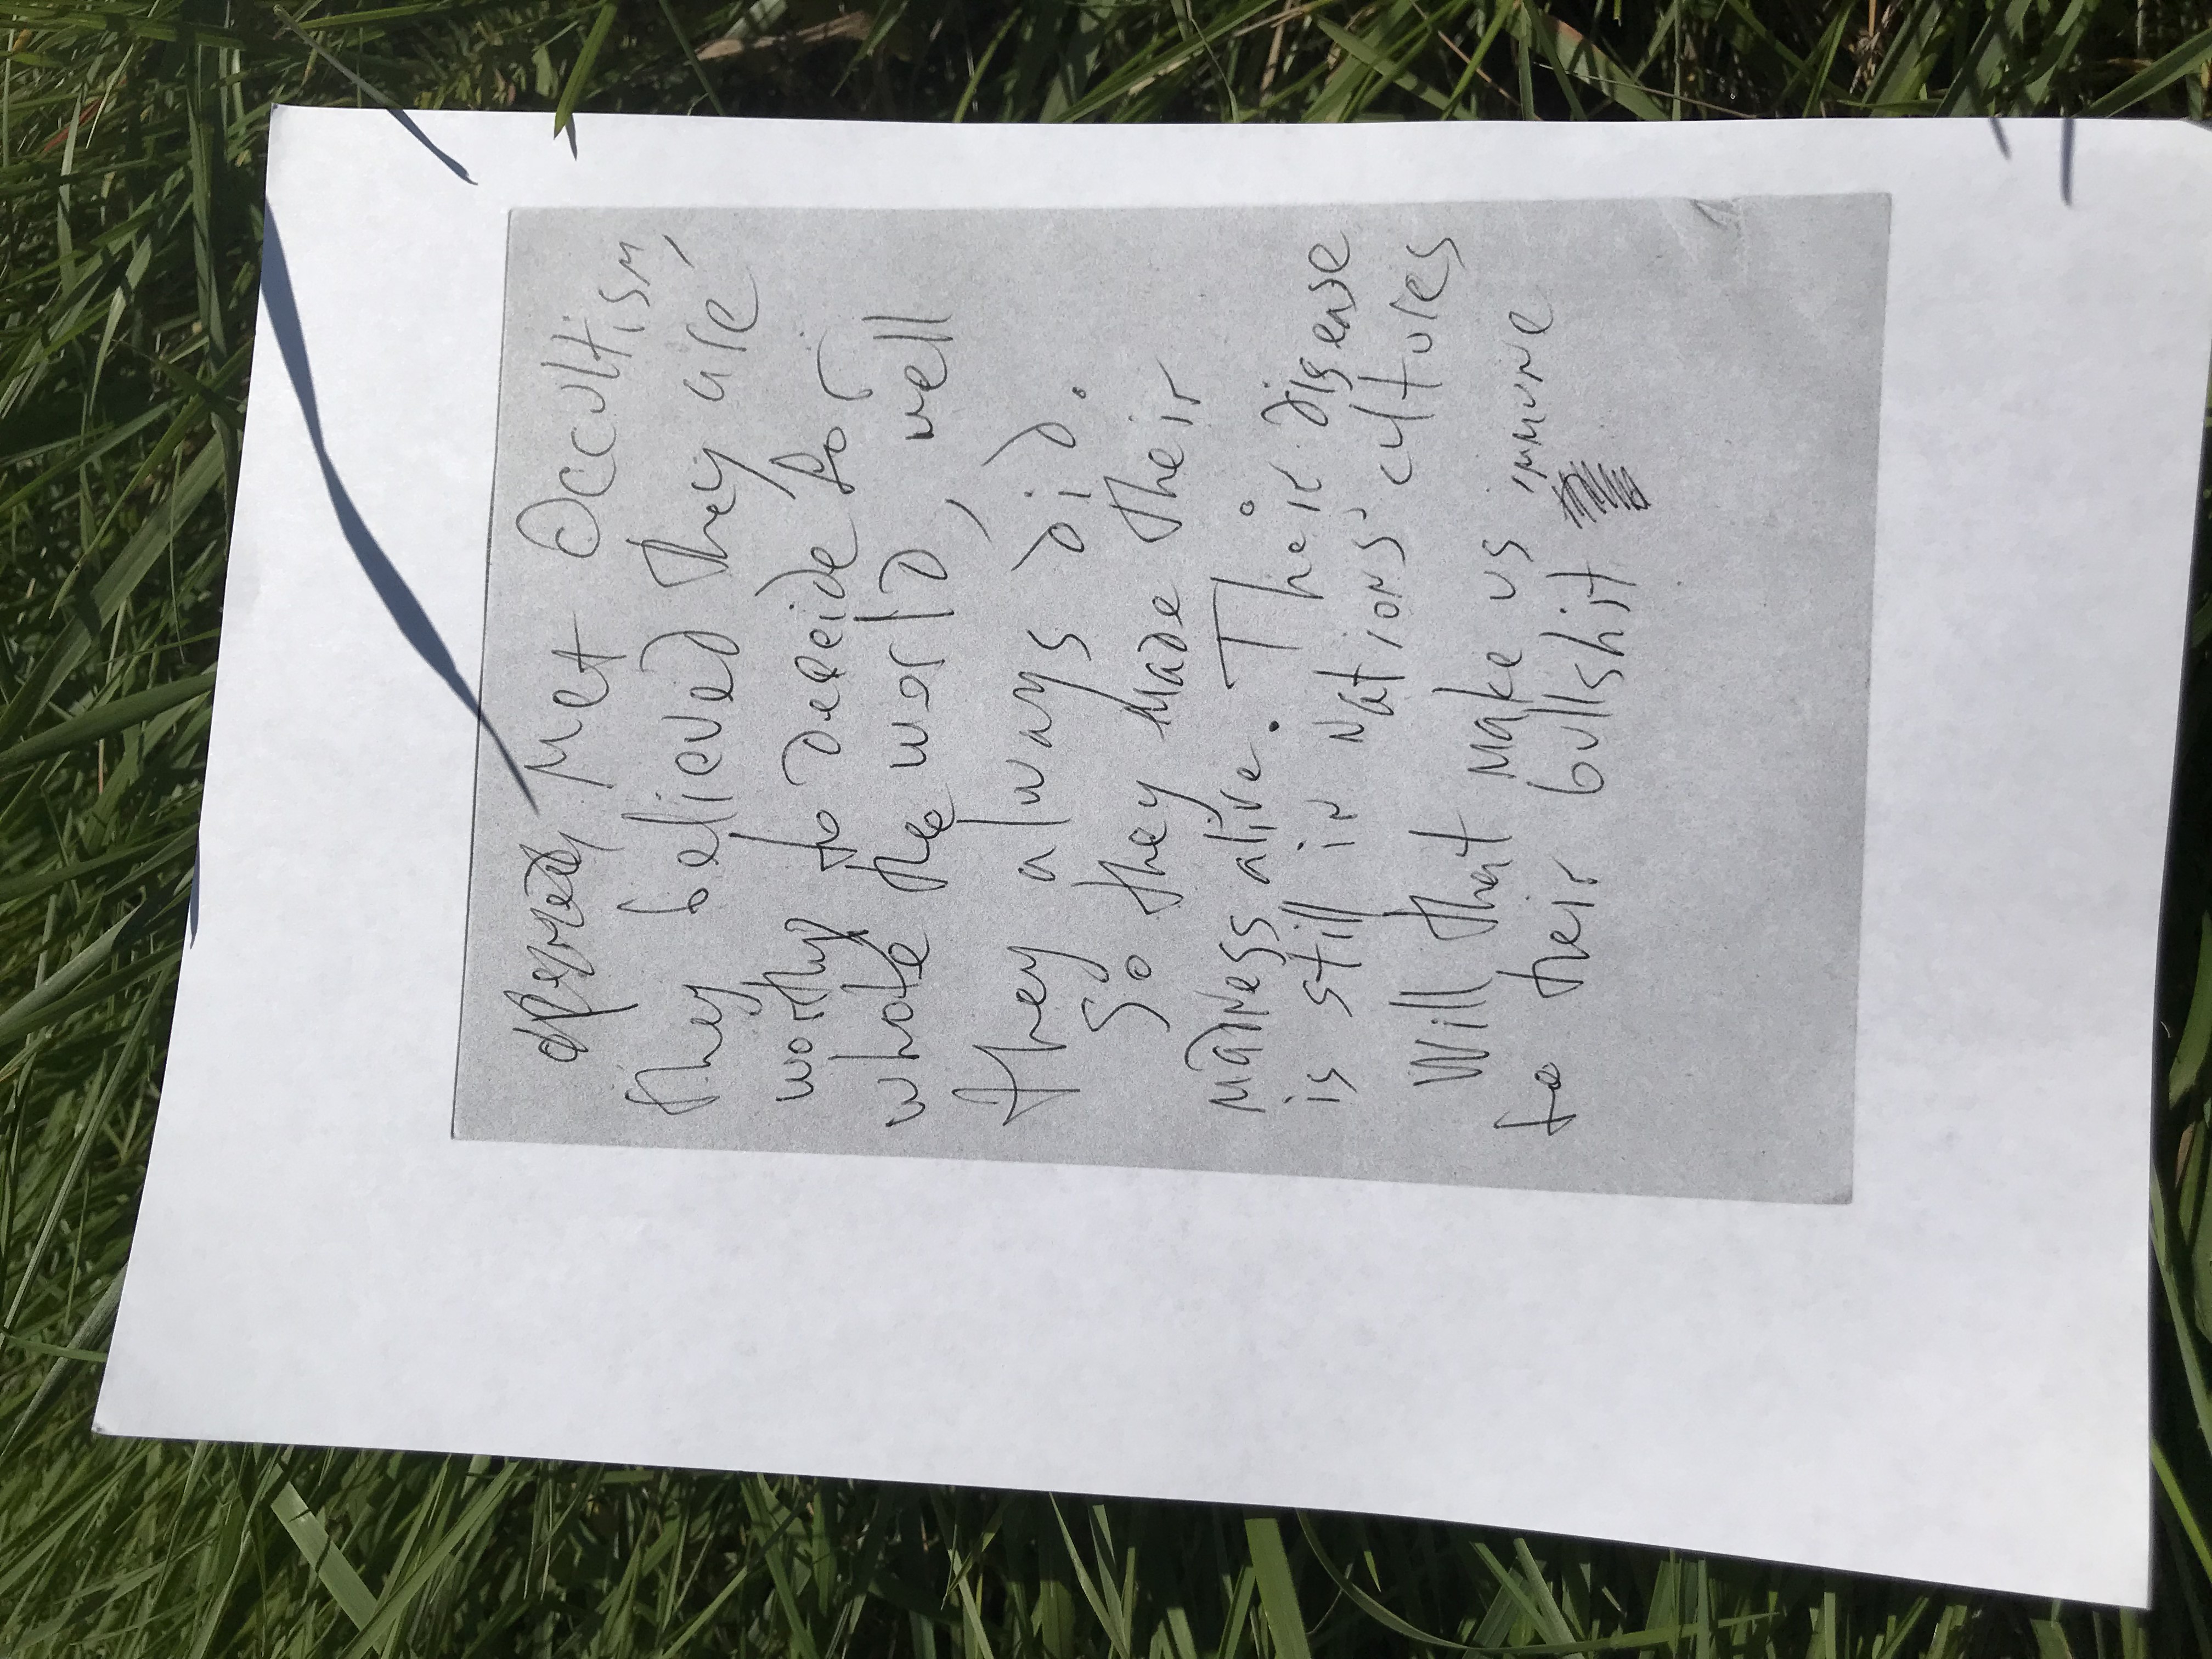 Met Occultism,
they believed they are
worthy to deceide for
whole the world, well
they always did.
So they made their
madness alive. Their disease
is still in nations' cultures
Will that make us immune
to their bullshit